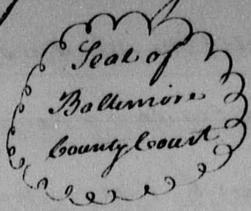 Seal of
Baltimore
County Court